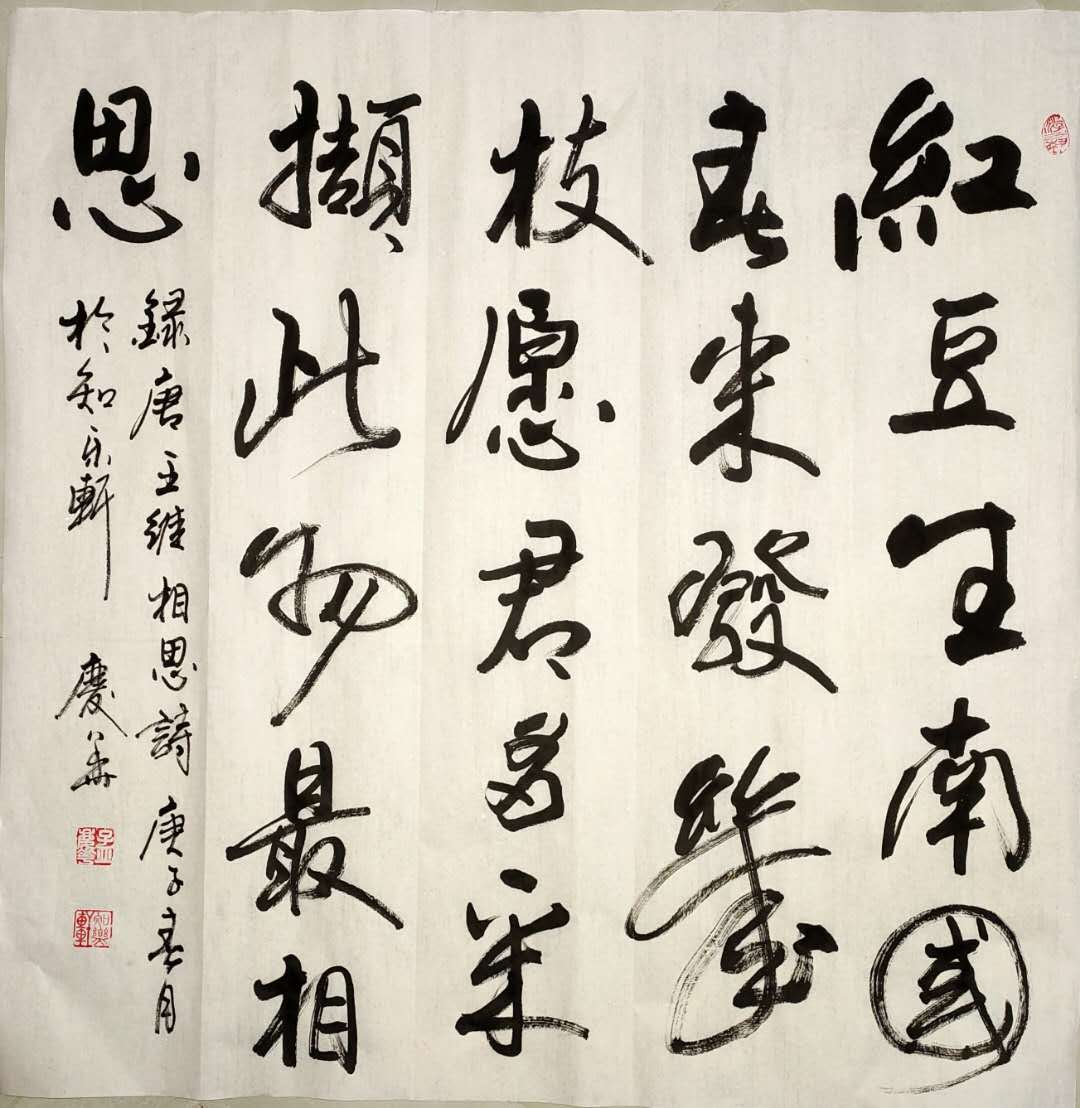 紅豆生南國
春来發幾
枝愿君多采
擷此物最相
思
録唐王維相思詩庚子春月
於知乐軒 慶华
知樂軒